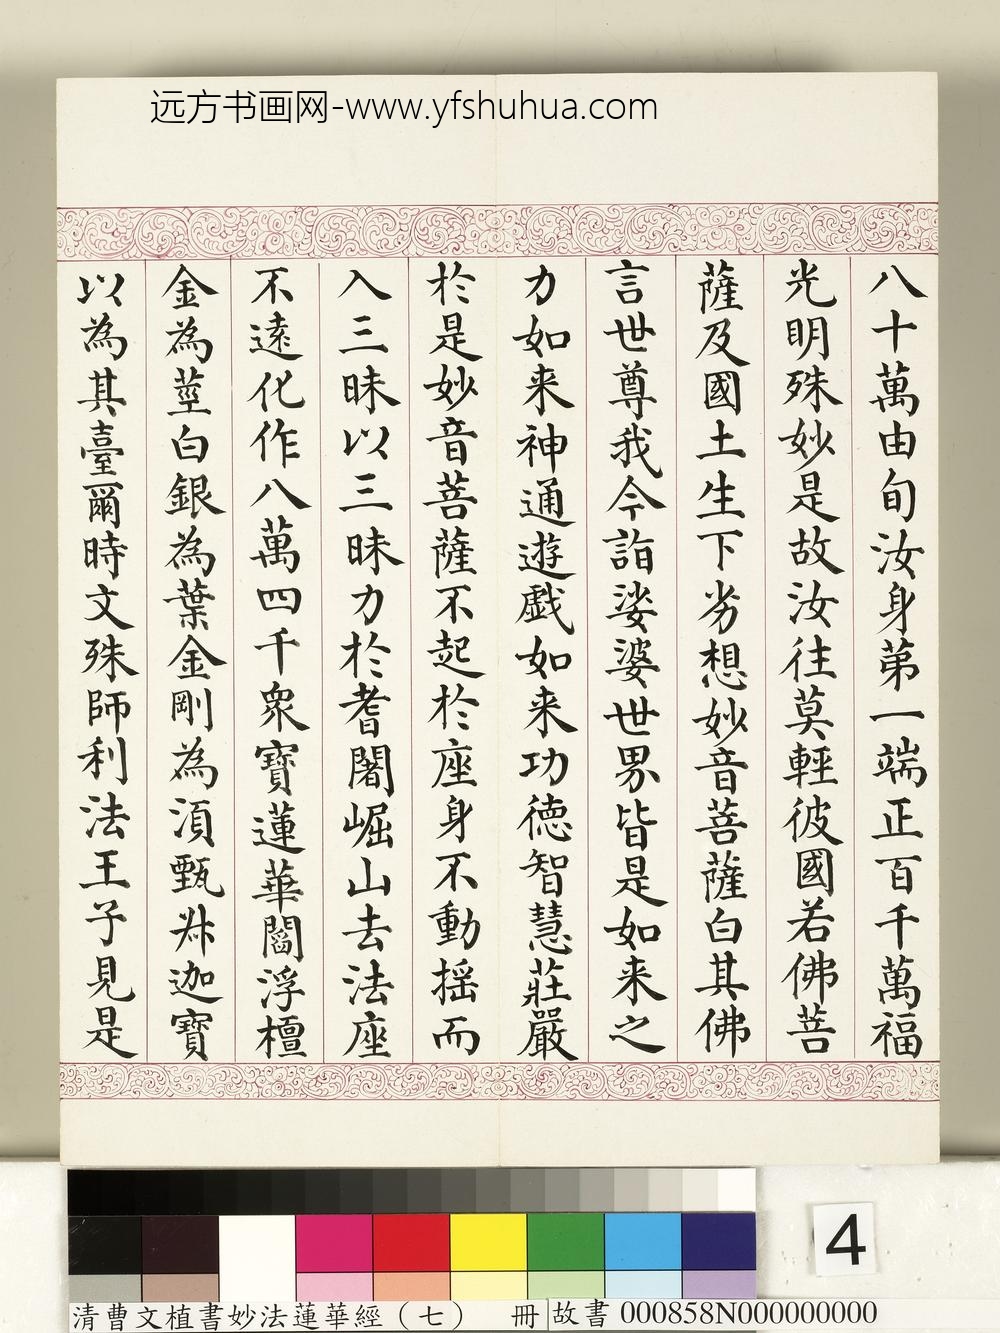 远方书画网-www.yfshuhua.com
八十萬由旬汝身苐一端正百千萬福
光明殊妙是故汝往莫輕彼國若佛菩
薩及國土生下劣想妙音菩薩白其佛
言世尊我今詣娑婆世界皆是如来之
力如来神通遊戯如来功徳智慧莊嚴
於是妙音菩薩不起於座身不動揺而
入三昧以三昧力於耆闍崛山去法座
不遠化作八萬四千衆寶蓮華閻浮檀
金為莖白銀為葉金剛為湏甄叔迦寶
以為其臺爾時文殊師利法王子見是
4
清曹文植書妙法蓮華經（七） 冊 故書 000858N000000000